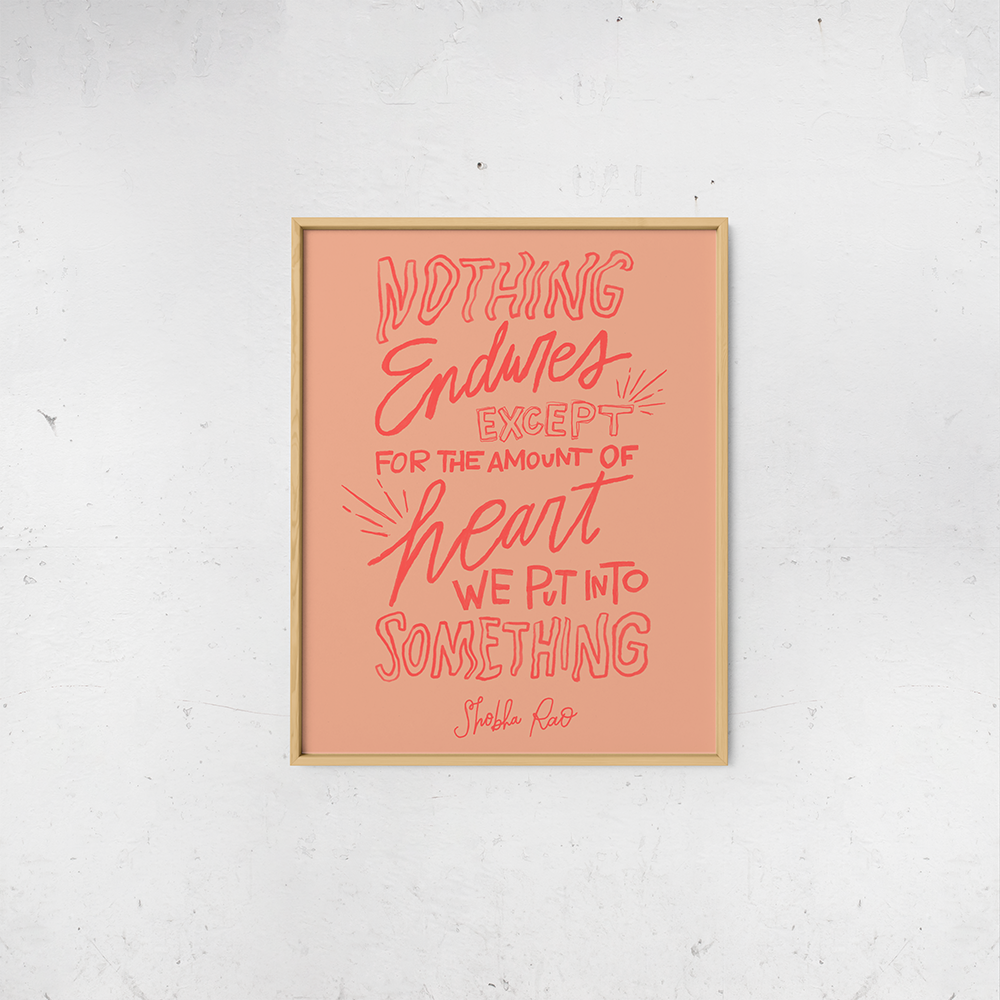 NOTHING
Endures
EXCEPT
FOR THE AMOUNT OF
heart
WE PUT INTO
SOMETHING
Shobha Rao